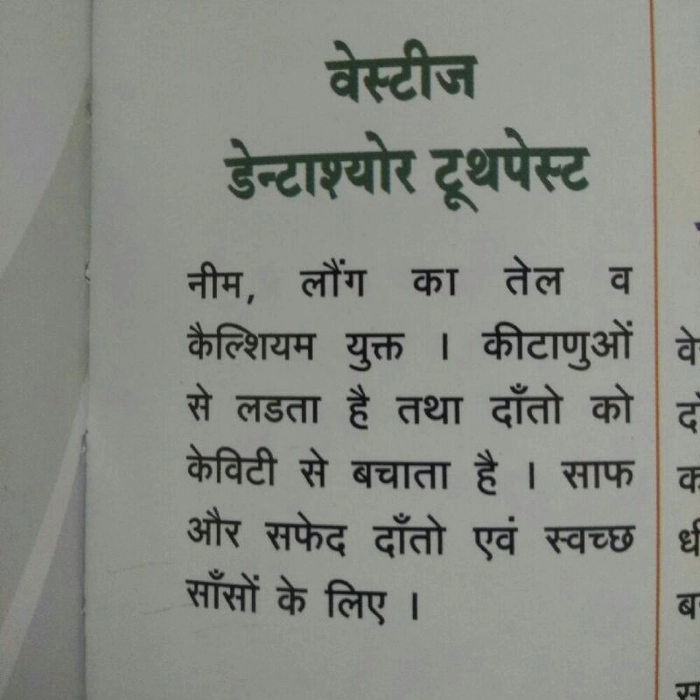 वेस्टीज
डेन्टाश्योर टूथपेस्ट
नीम, लौंग का तेल व
कैल्शियम युक्त ।  कीटाणुओं
से लडता है तथा दाँतो को
केविटी से बचाता है । साफ
और सफेद दाँतो एवं स्वच्छ
साँसों के लिए ।